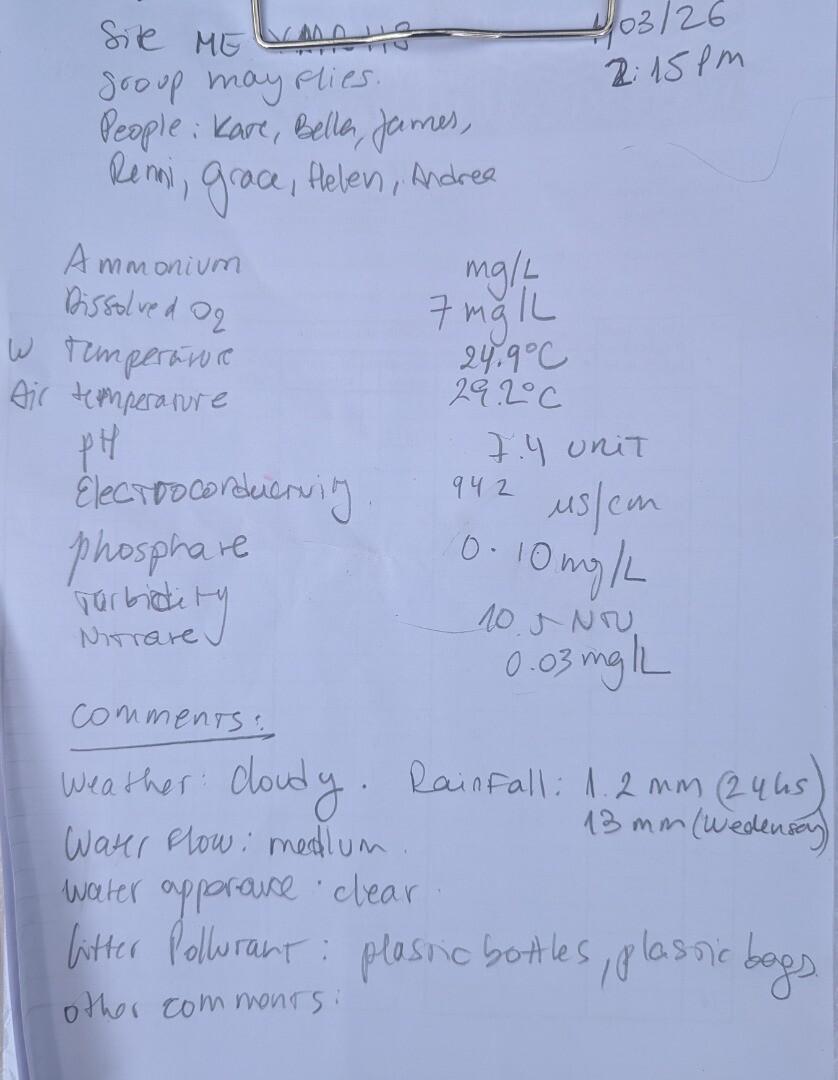 Site ME
/03/26
group may flies.
2:15 pm
People: Kate, Bella, James,
Remi, Grace, Helen, Andrea
Ammonium mg/L
Dissolved O2 7 mg/L
W Temperature 24.9°C
Air temperature 29.2°C
pH 7.4 unit
Electroconductivity 942 µs/cm
phosphate 0.10 mg/L
Turbidity 10.5 NTU
Nitrate 0.03 mg/L
Comments:
Weather: Cloudy. Rainfall: 1.2 mm (24hs)
13 mm (Wedensay)
Water flow: medium.
Water apperance: clear.
Litter Pollutant: plastic bottles, plastic bags.
other comments: